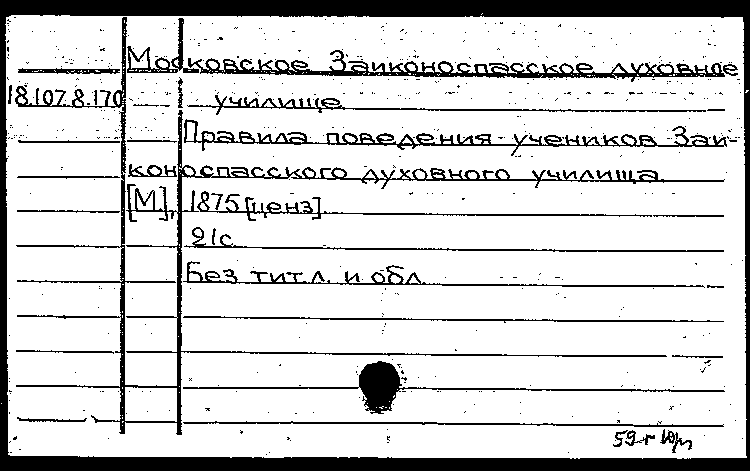 Московское Заиконоспасское духовное
18.107.8.170 училище
Правила поведения учеников Заи-
коноспасского духовного училища.
[М.], 1875 [ценз].
21с.
Без тит. л. и обл.
59 г